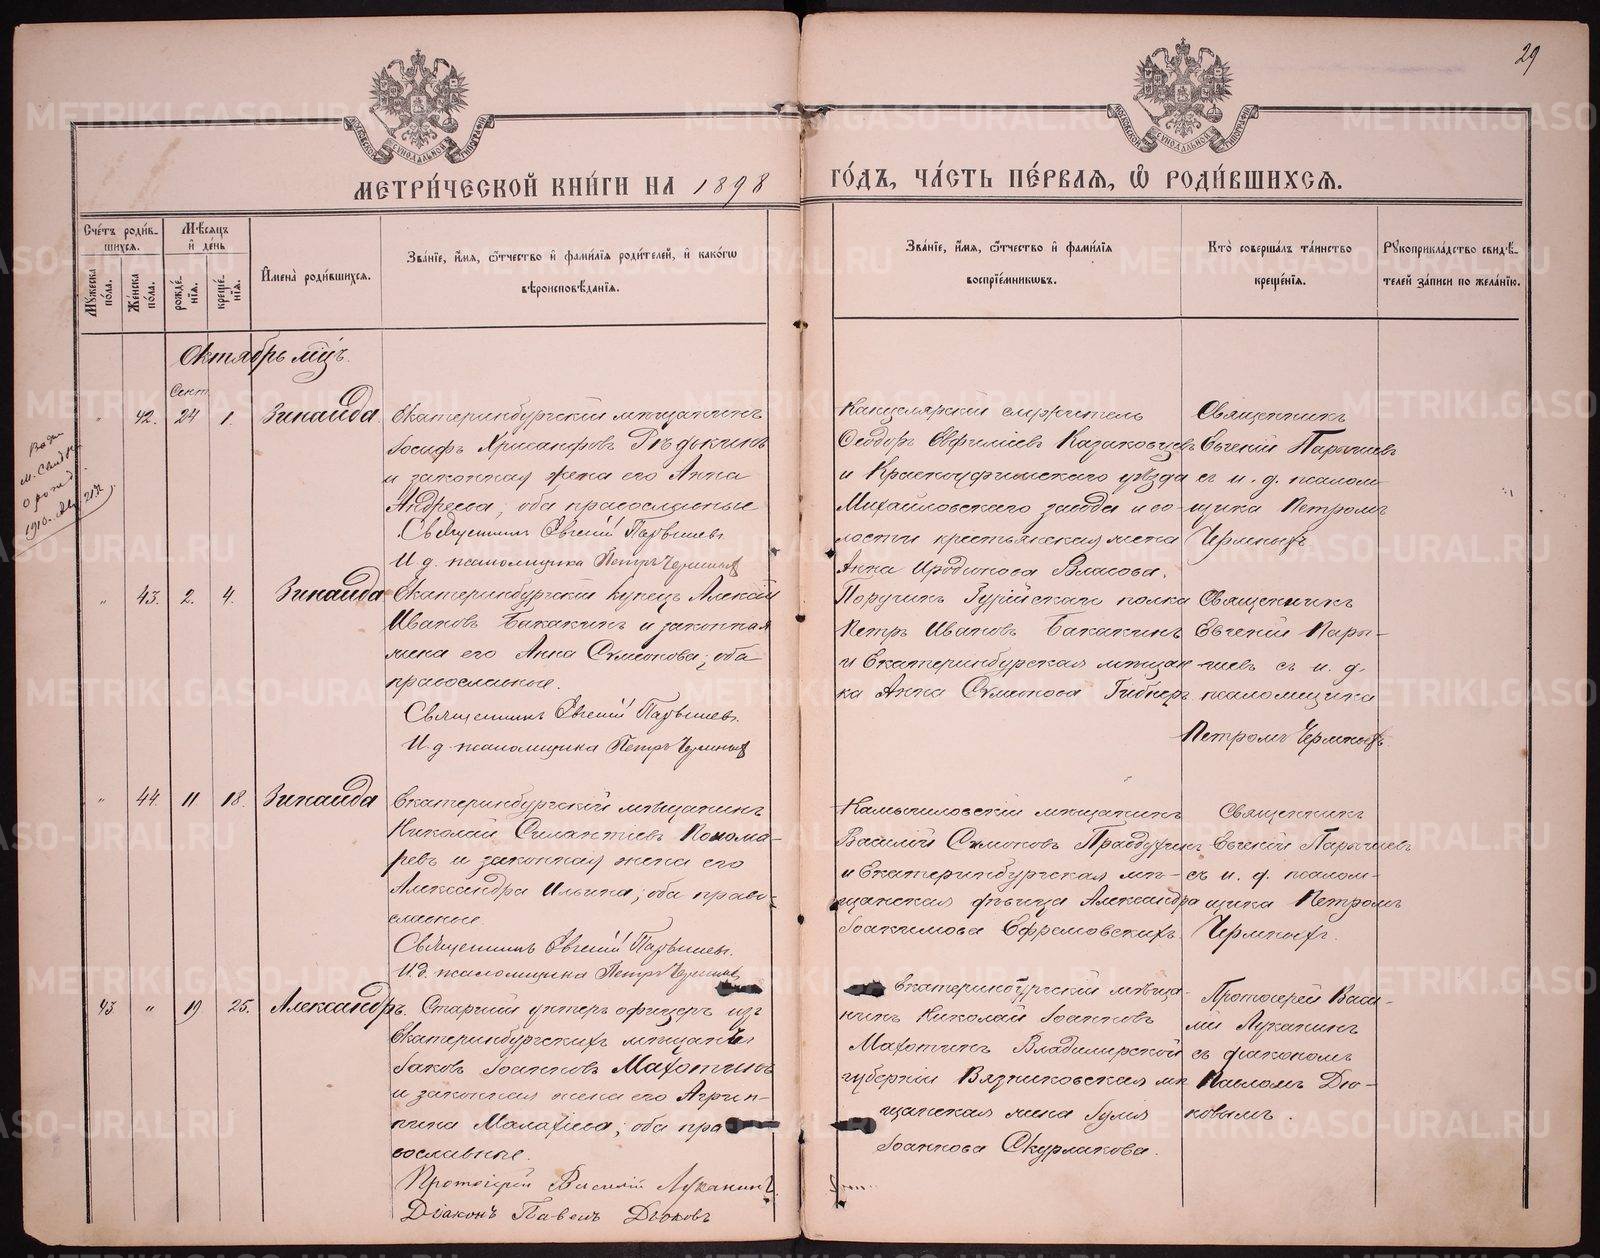 29
МОСКОВСКОЙ СѴНОДАЛЬНОЙ ТИПОГРАФІИ
МОСКОВСКОЙ СѴНОДАЛЬНОЙ ТИПОГРАФІИ
МЕТРИ́ЧЕСКОЙ КНИ́ГИ НА 1898
ГО́ДЪ, ЧА́СТЬ ПЕ́РВАЯ, Ѽ РОДИ́ВШИХСЯ.
Сче́тъ роди́в-
шихся.
Мꙋ́жеска по́ла.
Же́нска по́ла.
Мѣ́сяцъ
и҆ де́нь
рожде́-
нїя.
креще́-
нїя.
И҆мена̀ роди́вшихся.
Зва́нїе, и҆́мя, ѻ҆́тчество и҆ фами́лїя роди́телей, и҆ како́гѡ
вѣроисповѣ́данїя.
Зва́нїе, и҆́мя, ѻ҆́тчество и҆ фами́лїя
воспрїе́мникѡвъ.
Кто̀ соверша́лъ та́инство
креще́нїя.
Рꙋкоприкла́дство свидѣ́-
телей за́писи по жела́нїю.
Октябрь мцъ.
Сент.
" 42. 24 1. Зинаида
Екатеринбургскій мѣщанинъ
Іосифъ Хрисанфовъ Рѣдькинъ
и законная жена его Анна
Андреева; оба православные
Священникъ Евгеній Парышевъ
И д. псаломщика Петръ Чермныхъ
Канцелярскій служитель
Ѳеодоръ Евфиміевъ Казаковцевъ
и Красноуфимскаго уѣзда
Михайловскаго завода и во-
лости крестьянская жена
Анна Иродіонова Власова.
Священникъ
Евгеній Парышевъ
съ и. д. псалом-
щика Петромъ
Чермныхъ
1910.
" 43. 2. 4. Зинаида
Екатеринбургскій купецъ Алексій
Ивановъ Бакакинъ и законная
жена его Анна Сѵмеонова; оба
православные.
Священникъ Евгеній Парышевъ.
И. д. псаломщика Петръ Чермныхъ
Поручикъ Гурійскаго полка
Петръ Ивановъ Бакакинъ
и Екатеринбурская мѣщан
ка Анна Сѵмеонова Гибнеръ.
Священникъ
Евгеній Пары-
шевъ съ и. д.
псаломщика
Петромъ Чермныхъ.
" 44. 11 18. Зинаида
Екатеринбургскій мѣщанинъ
Николай Силантіевъ Понома-
ревъ и законная жена его
Александра Ильина; оба право-
славные
Священникъ Евгеній Парышевъ.
И. д. псаломщика Петръ Чермныхъ
Камышловскій мѣщанинъ
Василій Сѵмеоновъ
и Екатеринбургская мѣ-
щанская дѣвица Александра
Іоакимова Ефремовскихъ.
Священникъ
Евгеній Парышевъ
съ и. д. псалом-
щика Петромъ
Чермныхъ.
43 " 19 25. Александръ.
Старшій унтеръ офицеръ изъ
Екатеринбургскихъ мѣщанъ
Іаковъ Іоанновъ Махоткинъ
и законная жена его Агрип-
пина Малахіева; оба пра
вославные.
Протоіерей Василій Луканинъ.
Діаконъ Павелъ Дюковъ
Екатеринбургскій мѣща-
нинъ Николай Іоанновъ
Махоткинъ Владимірской
губерніи Вязниковская мѣ
щанская жена Іулія
Іоаннова Скурлакова.
Протоіерей Васи-
лій Луканинъ
съ діакономъ
Павломъ Дю-
ковымъ.
METRIKI.GASO-URAL.RU